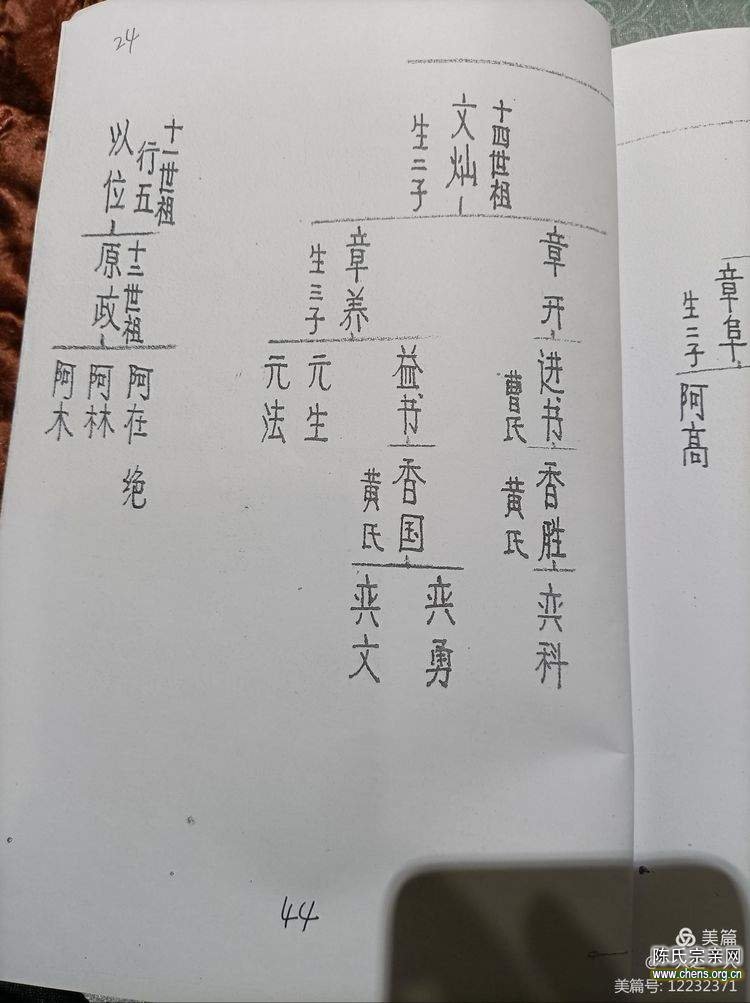 24
章阜
生二子
阿高
十四世祖
文灿
生二子
章开
进书
曹氏
香胜
黄氏
奕科
章养
生三子
益书
香国
黄氏
奕勇
奕文
元生
元法
十一世祖
行五
以位
十二世祖
原政
阿在 绝
阿林
阿木
44
美篇
陈氏宗亲网
www.chens.org.cn
美篇号: 12232371